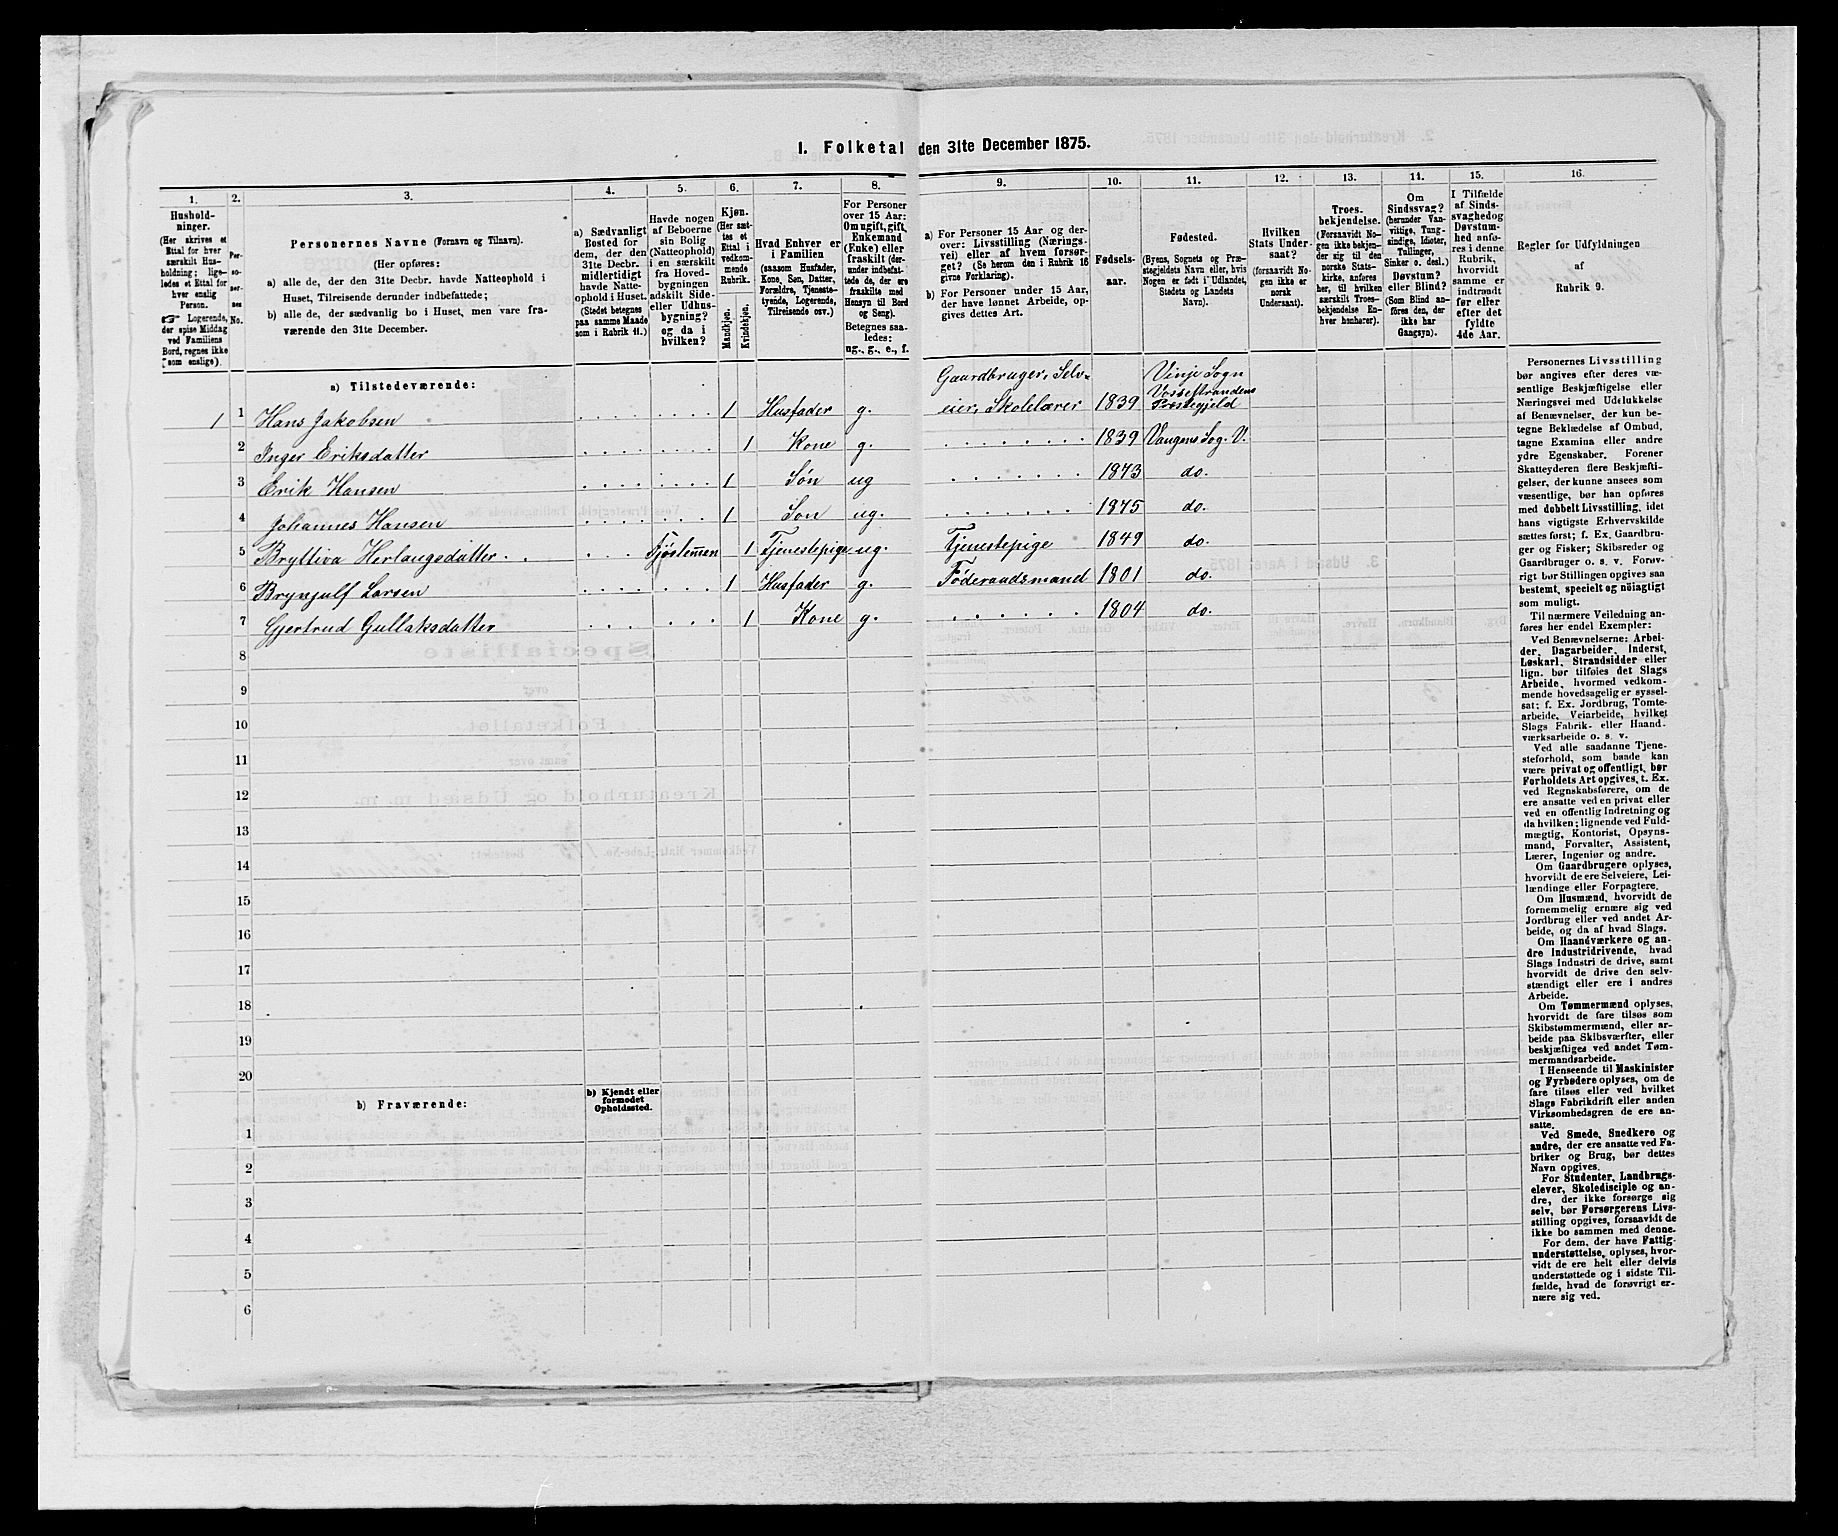 I. Folketal den 31te December 1875.
1.
2.
3.
4.
5.
6.
7.
8.
9.
10.
11.
12.
13.
14.
15.
16.
Hushold-
ninger.
(Her skrives et
Ettal for hver
særskilt Hus-
holdning; lige-
ledes et Ettal for
hver enslig
Person.
☞ Logerende,
der spise Middag
ved Familiens
Bord, regnes ikke
som enslige).
Per-
so-
ner-
nes
No.
Personernes Navne (Fornavn og Tilnavn).
(Her opføres:
a) alle de, der den 31te Decbr. havde Natteophold i
Huset, Tilreisende derunder indbefattede;
b) alle de, der sædvanlig bo i Huset, men vare fra-
værende den 31te December.
a) Sædvanligt
Bosted for
dem, der den
31te Decbr.
midlertidigt
havde Natte-
ophold i Huset.
(Stedet betegnes
paa samme Maade
som i Rubrik 11.)
Havde nogen
af Beboerne
sin Bolig
(Natteophold)
i en særskilt
fra Hoved-
bygningen
adskilt Side-
eller Udhus-
bygning?
og da i
hvilken?
Kjøn.
(Her sæt-
tes et
Ettal i
vedkom-
mende
Rubrik.
Mandkjøn.
Kvindekjøn.
Hvad Enhver er
i Familien
(saasom Husfader,
Kone, Søn, Datter,
Forældre, Tjeneste-
tyende, Logerende,
Tilreisende osv.)
For Personer
over 15 Aar:
Om ugift, gift,
Enkemand
(Enke) eller
fraskilt (der-
under indbefat-
tede de, der ere
fraskilte med
Hensyn til Bord
og Seng).
Betegnes saa-
ledes:
ug., g., e., f.
a) For Personer 15 Aar og der-
over: Livsstilling (Nærings-
vei) eller af hvem forsør-
get? (Se herom den i Rubrik 16
givne Forklaring).
b) For Personer under 15 Aar,
der have lønnet Arbeide, op-
gives dettes Art.
Fødsels-
aar.
Fødested.
(Byens, Sognets og Præ-
stegjeldets Navn eller, hvis
Nogen er født i Udlandet,
Stedets og Landets
Navn).
Hvilken
Stats Under-
saat?
(forsaavidt No-
gen ikke er
norsk
Undersaat).
Troes-
bekjendelse.
(Forsaavidt No-
gen ikke bekjen-
der sig til den
norske Stats-
kirke, anføres
her, til hvilken
særskilt Troes-
bekjendelse En-
hver henhører).
Om
Sindssvag?
(herunder Van-
vittige, Tung-
sindige, Idioter,
Tullinger,
Sinker o. desl.)
Døvstum?
eller Blind?
(Som Blind an-
føres den, der
ikke har
Gangsyn).
I Tilfælde
af Sinds-
svaghed og
Døvstum-
hed anfø-
res i denne
Rubrik,
hvorvidt
samme er
indtraadt
før eller
efter det
fyldte
4de Aar.
Regler for Udfyldningen
af
Rubrik 9.
a) Tilstedeværende:
1 1 Hans Jakobsen 1 Husfader g. Gaardbruger, Selv-
eier, Skolelærer 1839 Vinje Sogn
Vossestrandens
Præstegjeld
2 Inger Eriksdatter 1 Kone g. 1839 Vangens Sog. V.
3 Erik Hansen 1 Søn ug 1873 do.
4 Johannes Hansen 1 Søn ug. 1875 do.
5 Bryttiva Herlaugsdatter 1 Tjenestepige ug. Tjenestepige 1849 do.
6 Brynjulf Larsen 1 Husfader g. Føderaadsmand 1801 do.
7 Gjertrud Gullaksdatter 1 Kone g. 1804 do.
8
9
10
11
12
13
14
15
16
17
18
19
20
b) Fraværende:
b) Kjendt eller
formodet
Opholdssted.
1
2
3
4
5
6
Personernes Livsstilling
bør angives efter deres væ-
sentlige Beskjæftigelse eller
Næringsvei med Udelukkelse
af Benævnelser, der kun be-
tegne Beklædelse af Ombud,
tagne Examina eller andre
ydre Egenskaber. Forener
Skatteyderen flere Beskjæfti-
gelser, der kunne ansees som
væsentlige, bør han opføres
med dobbelt Livsstilling, idet
hans vigtigste Erhvervskilde
sættes først; f. Ex. Gaardbru-
ger og Fisker; Skibsreder og
Gaardbruger o. s. v. Forøv-
rigt bør Stillingen opgives saa
bestemt, specielt og nøiagtigt
som muligt.
Til nærmere Veiledning an-
føres her endel Exempler:
Ved Benævnelserne: Arbei-
der, Dagarbeider, Inderst,
Løskarl, Strandsidder eller
lign. bør tilføies det Slags
Arbeide, hvormed vedkom-
mende hovedsagelig er syssel-
sat; f. Ex. Jordbrug, Tomte-
arbeide, Veiarbeide, hvilket
Slags Fabrik- eller Haand-
værksarbeide o. s. v.
Ved alle saadanne Tjene-
steforhold, som baade kan
være privat og offentligt, bør
Forholdets Art opgives, t. Ex.
ved Regnskabsførere, om de
ere ansatte ved en privat eller
ved en offentlig Indretning og
da hvilken; lignende ved Fuld-
mægtig, Kontorist, Opsyns-
mand, Forvalter, Assistent,
Lærer, Ingeniør og andre.
Om Gaardbrugere oplyses,
hvorvidt de ere Selveiere, Lei-
lændinge eller Forpagtere.
Om Husmænd, hvorvidt de
fornemmelig ernære sig ved
Jordbrug eller ved andet Ar-
beide, og da af hvad Slags.
Om Haandværkere og an-
dre Industridrivende, hvad
Slags Industri de drive, samt
hvorvidt de drive den selv-
stændigt eller ere i andres
Arbeide.
Om Tømmermænd oplyses,
hvorvidt de fare tilsøs som
Skibstømmermænd, eller ar-
beide paa Skibsværfter, eller
beskjæftiges ved andet Tøm-
mermandsarbeide.
I Henseende til Maskinister
og Fyrbødere oplyses, om de
fare tilsøs eller ved hvilket
Slags Fabrikdrift eller anden
Virksomhedsgren de ere an-
satte.
Ved Smede, Snedkere og
andre, der ere ansatte ved Fa-
briker og Brug, bør dettes
Navn opgives.
For Studenter, Landbrugs-
elever, Skoledisciple og an-
dre, der ikke forsørge sig
selv, bør Forsørgerens Livs-
stilling opgives, forsaavidt de
ikke bo sammen med denne.
For dem, der have Fattig-
understøttelse, oplyses, hvor-
vidt de ere helt eller delvis
understøttede og i sidste Til-
fælde, hvad de forøvrigt er-
nære sig ved.